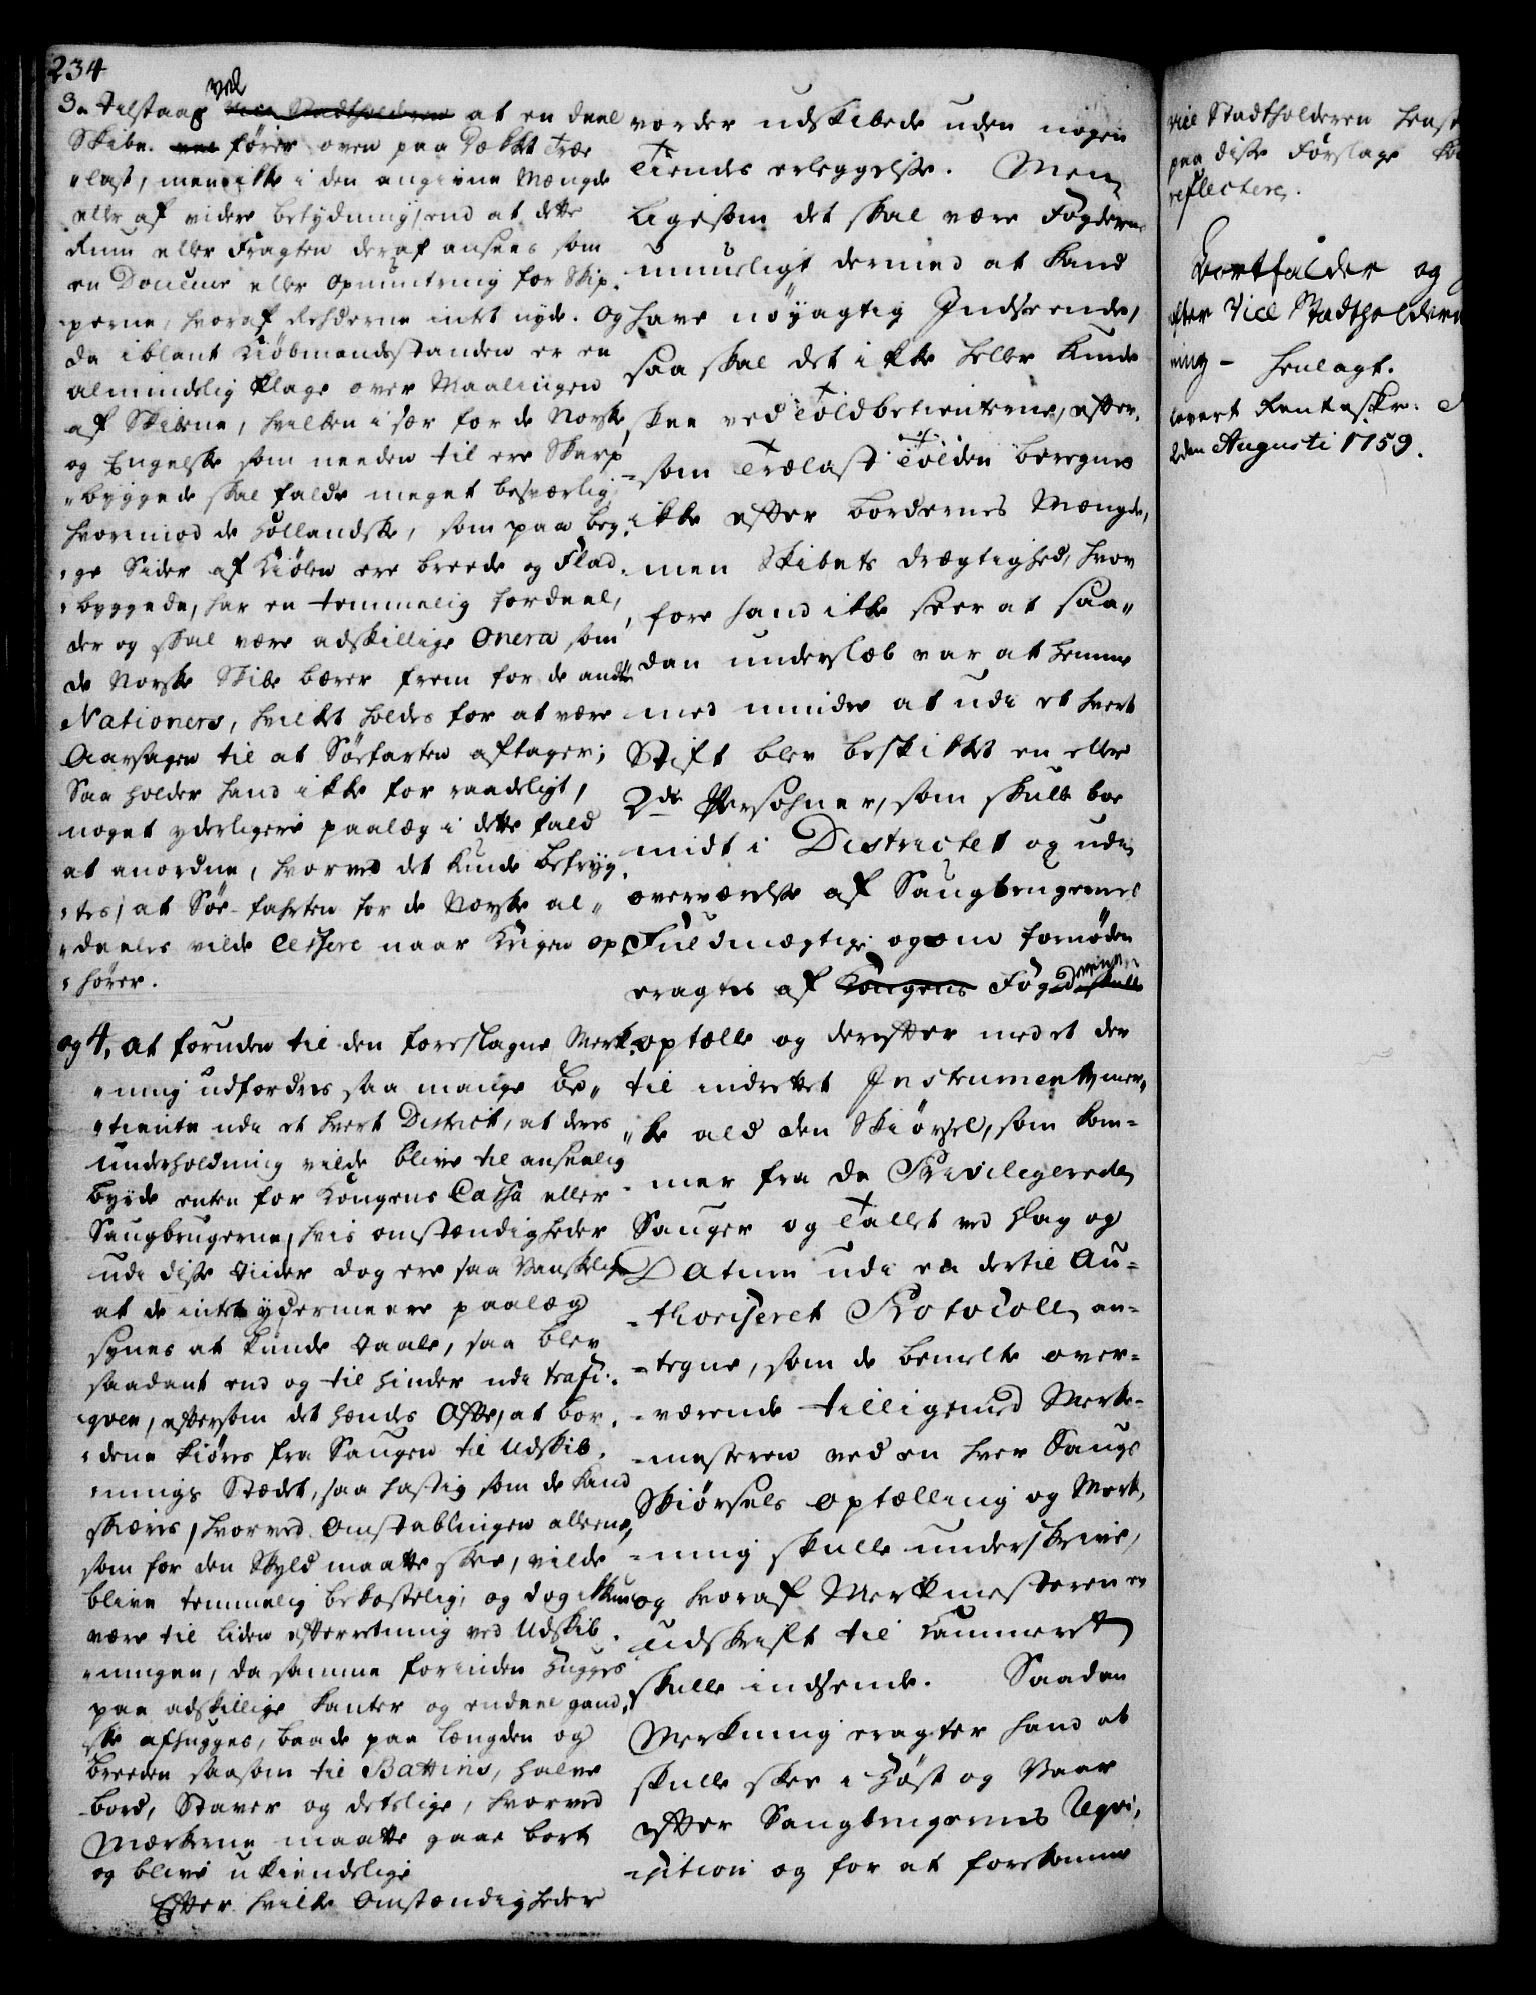 234
ved
3. Tilstaas Vice Stadtholderen at en deel
Skibe fører oven paa Dækket Træ
last, men ikke i den angivne Mængde
eller af videre betydning, end at dette
Rum eller Fragten deraf ansees som
en Douceur eller Opmuntring for Skip
perne, hvoraf Rehderne intet nyde. Og
da iblant Kiöbmandsstanden er en
almindelig Klage over Maalingen
af Skibene, hvilken i sær for de Norske
og Engelske som needen til ere Skarp
byggede skal falde meget besværlig
hvorimod de Hollandske, som paa beg
ge Sider af Kiølen ere breede og Flad
byggede, har en temmelig fordeel,
der og skal være adskillige Onera som
de Norske Skibe bærer frem for de andre
Nationers, hvilket holdes for at være
Aarsagen til at Söefarten aftager;
Saa holder hand ikke for raadeligt,
noget yderligere paalæg i dette fald
at anordne, hvorved det kunde befryg
tes, at Söe-fahrten for de Norske al
deeles vilde cessere naar Krigen op
hører.
og 4, at foruden til den foreslagne Merk
ning udfordres saa mange be
tiente udi et hvert District, at deres
underholdning vilde blive til anseelig
byrde enten for Kongens Cassa eller
Saugbrugerne, hvis omstændigheder
udi disse Tiider dog ere saa Vanskelige
at de intet ydermeere paalæg
synes at kunde taale, saa blev
saadant end og til hinder udi trafi
qven, eftersom det hændes Ofte, at bor
dene kiøres fra Saugen til Udskib
nings Stædet, saa hastig som de kand
skieres, hvorved Omstablingen alleene,
som for den Skyld maatte skee, vilde
blive temmelig bekostelig, og dog
være til liden efterretning ved Udskib
ningen, da samme forinden hugges
paa adskillige kanter og endeel gand
ske afhugges, baade paa længden og
breeden saasom til Battins, halve
bord, Staver og deslige, hvorved
Mærkerne maatte gaae bort
og blive ukiendelige
Efter hvilke Omstændigheder
vorder udskibede uden nogen
Tiendes erleggelse. Men
ligesom det skal være Fogderne
umueligt dermed at kand
have nøyagtig Indseende,
saa skal det ikke heller kunde
skee ved Toldbetienterne, efter
som Trælast Tolden beregnes
ikke efter bordernes Mængde,
men Skibets drægtighed, hvor
fore hand ikke seer at saa
dan underslæb var at hemme
med mindre at udi et hvert
Stift blev beskikket en eller
2de Persohner, som skulle boe
midt i Districtet og udi
overværelse af Saugbrugernes
Fuldmægtige og om fornöden
eragtes af Kongens Fogderne
optælle og derefter med et der
til indrettet Instrument mer
ke ald den Skiørsel, som kom-
mer fra de Privilegerede
Sauger og Tallet ved Flag og
Datum udi en dertil Au-
thoriseret Protocoll an-
tegne, som de bemelte over-
værende tilligemed Merke-
mesteren ved en hver Saugs
Skiørsels optælling og Merk,
ning skulle underskrive,
og hvoraf Merkmesteren en
udskrift til Cammeret
skulle indsende. Saadan
Merkning eragter hand at
skulle skee i Høst og Vaar
efter Saugbrugernes Reqvi,
sition og for at forekomme
vice Stadtholderen
paa disse Forslage
reflectere.
Bortfalder og
efter Vice Stadtholderen
ning - henlagt.
levert Renteskr:
den Augusti 1759.